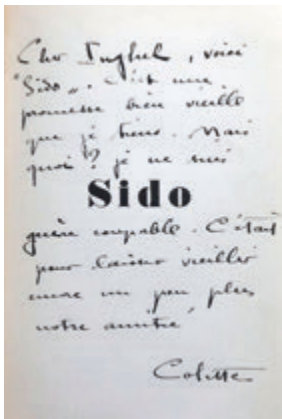 Cher Inghel, voici
"Sido". C'est une
promesse bien vieille
que je tiens. Mais
quoi ? je ne suis
Sido
guère coupable. C'était
pour laisser vieillir
encore un peu plus
notre amitié
Colette